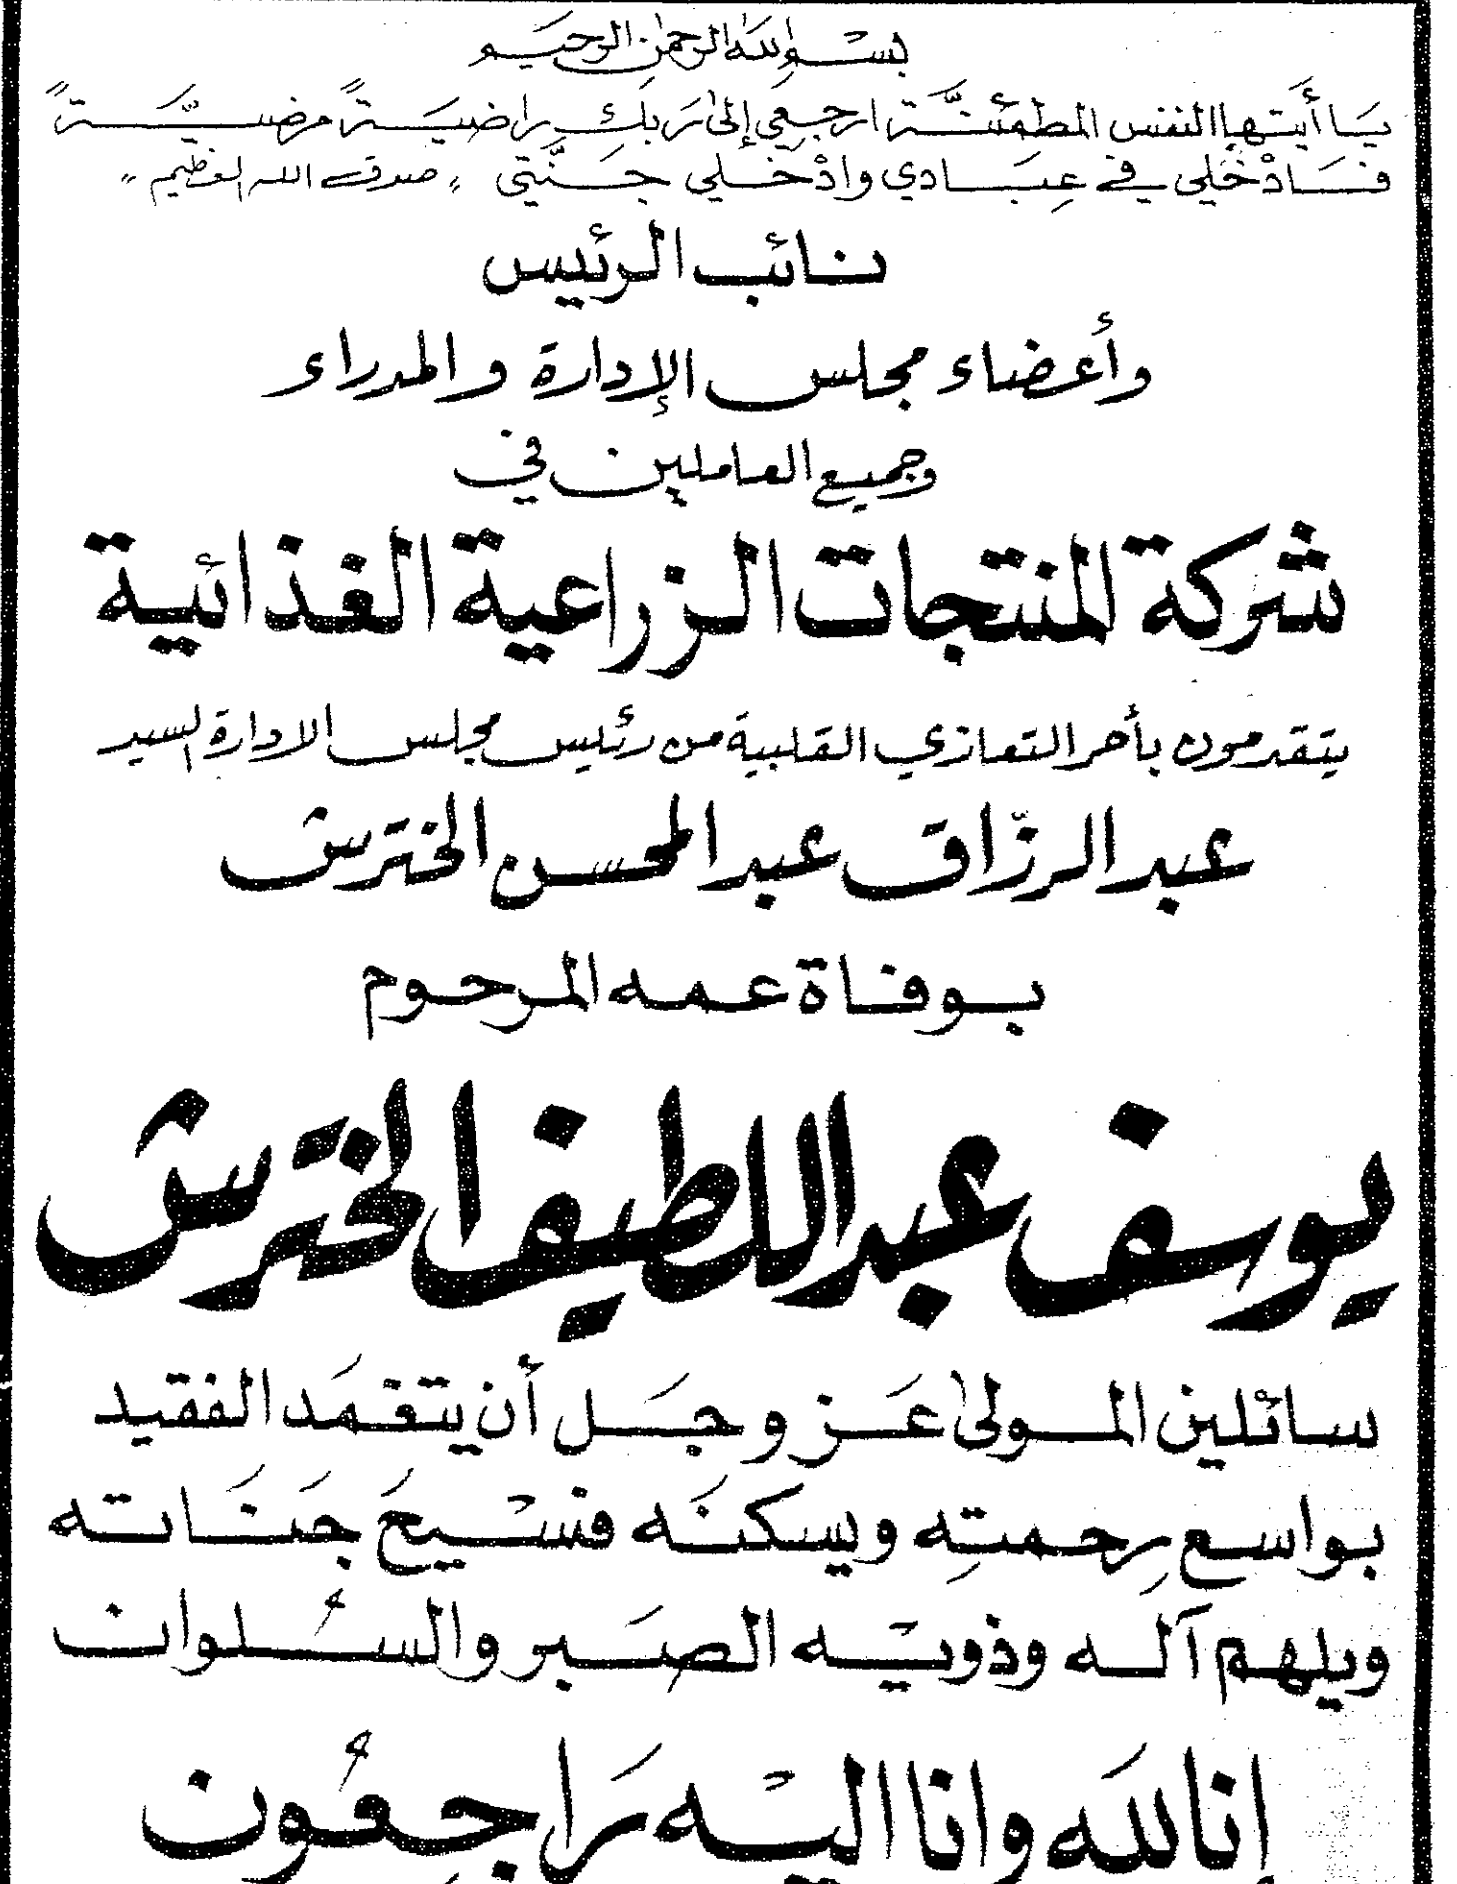 بسم الله الرحمن الرحيم
يَا أَيتها النفس المطمئنَّة ارجعِي إلىٰ رَبكِ راضيَةً مرضيَّةً
فَادْخُلي في عِبَادي وادْخلي جَنَّتي "صدق الله العظيم"
نائب الرئيس
وأعضاء مجلس الإدارة والمدراء
وجميع العاملين في
شركة المنتجات الزراعية الغذائية
يتقدمون بأحر التعازي القلبية من رئيس مجلس الادارة السيد
عبد الرزّاق عبد المحسن الخترش
بوفاة عمه المرحوم
يوسف عبد اللطيف الخترش
سائلين المولىٰ عَز وجَل أن يتغمَد الفقيد
بواسع رِحمتِه ويسكنَه فسْيحَ جَنَاته
ويلهم آله وذويْه الصَبر والسُلوان
إنا للَه وانا اليْه رَاجِعُون